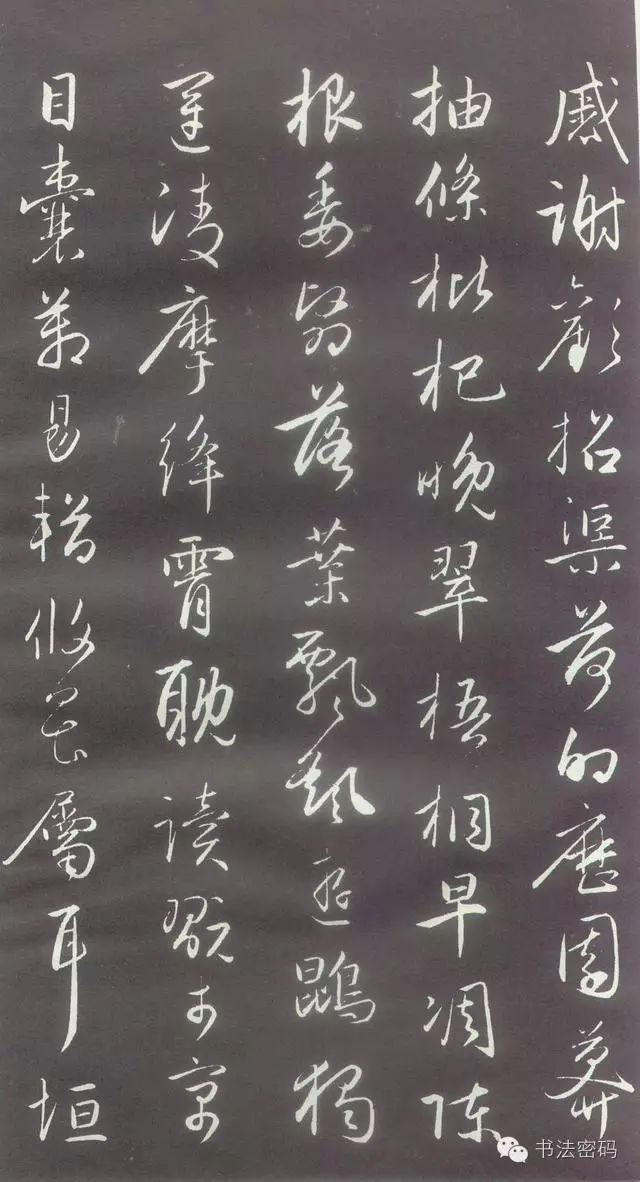 慼謝歡招渠荷的歷園莽
抽條枇杷晚翠梧桐早凋陳
根委翳落葉飄颻遊鵾獨
運凌摩絳霄耽讀翫市寓
目囊箱易輶攸畏屬耳垣
书法密码